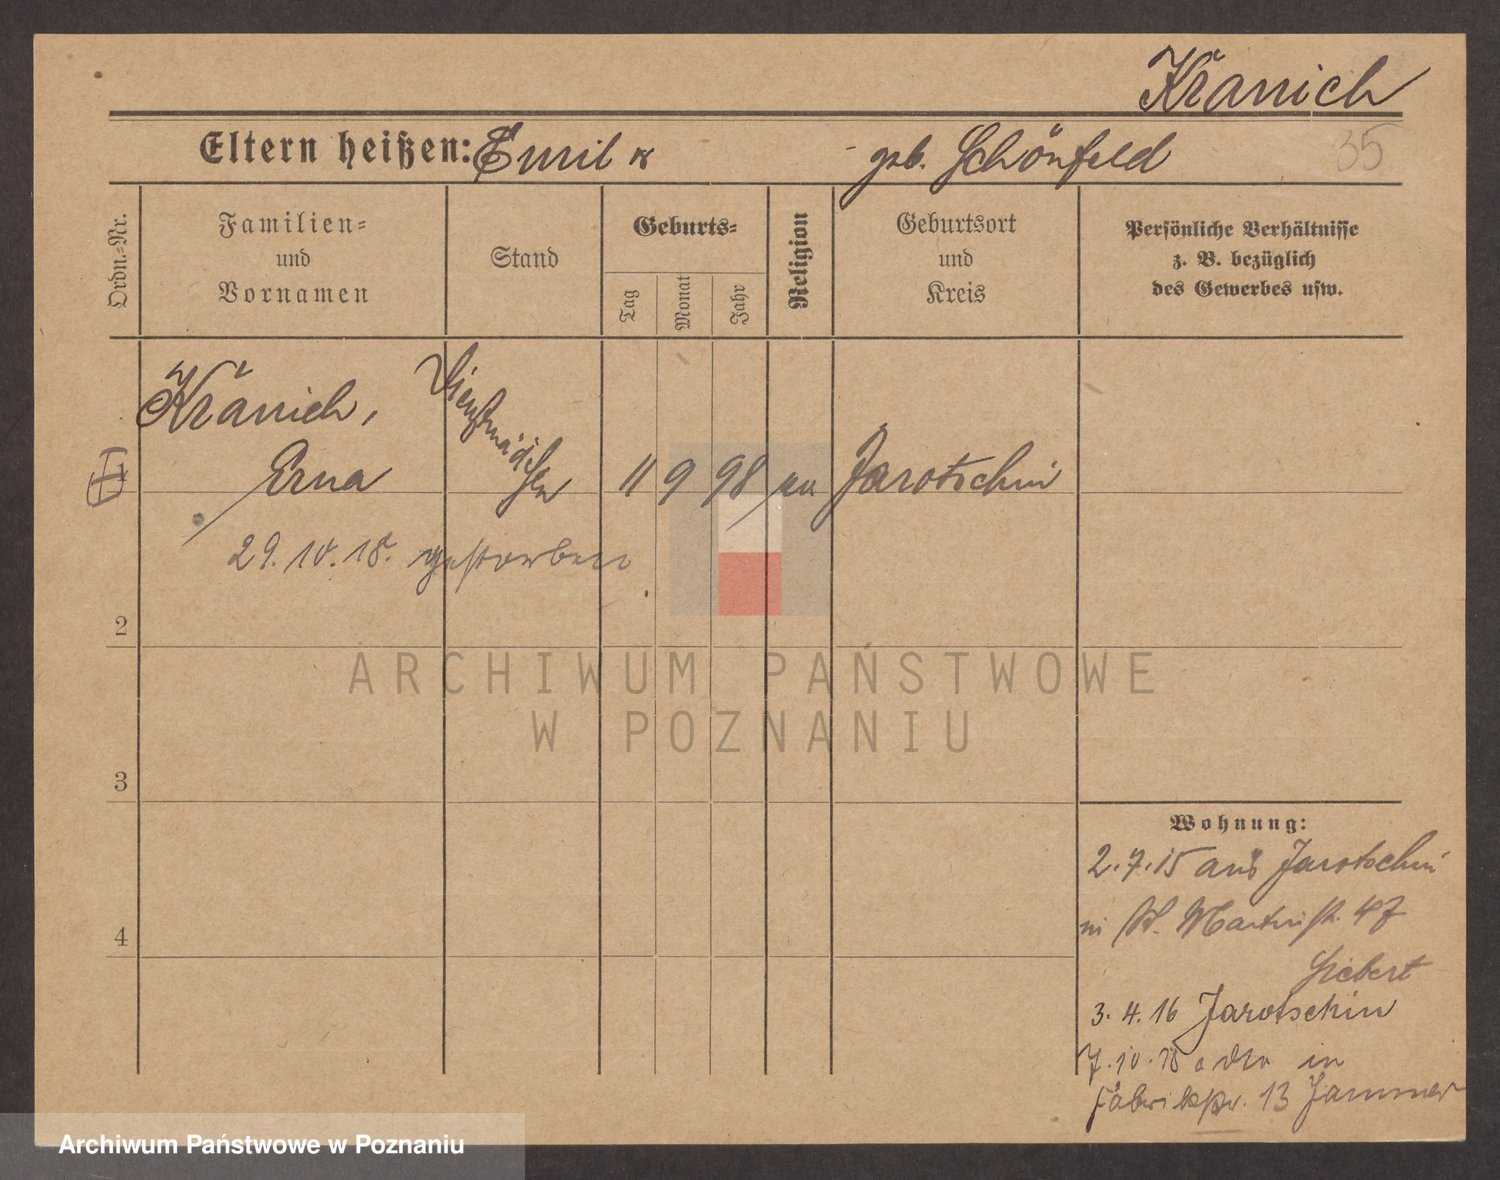 Kranich
Eltern heißen: Emil geb. Schönfeld
35
Ordn.-Nr.
Familien-
und
Vornamen
Stand
Geburts-
Tag
Monat
Jahr
Religion
Geburtsort
und
Kreis
Persönliche Verhältnisse
z. B. bezüglich
des Gewerbes usw.
Kranich,
Erna
Dienstmädchen
11 9 98 Jarotschin
29. 10. 18. gestorben
2
3
4
Wohnung:
2.7.15 aus Jarotschin
St. Martinstr. 47
Siebert
3. 4. 16 Jarotschin
7.10.18 in
Fabrikstr. 13
ARCHIWUM PAŃSTWOWE
W POZNANIU
Archiwum Państwowe w Poznaniu